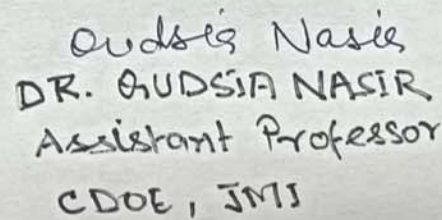 Qudsia Nasir
DR. QUDSIA NASIR
Assistant Professor
CDOE, JMI